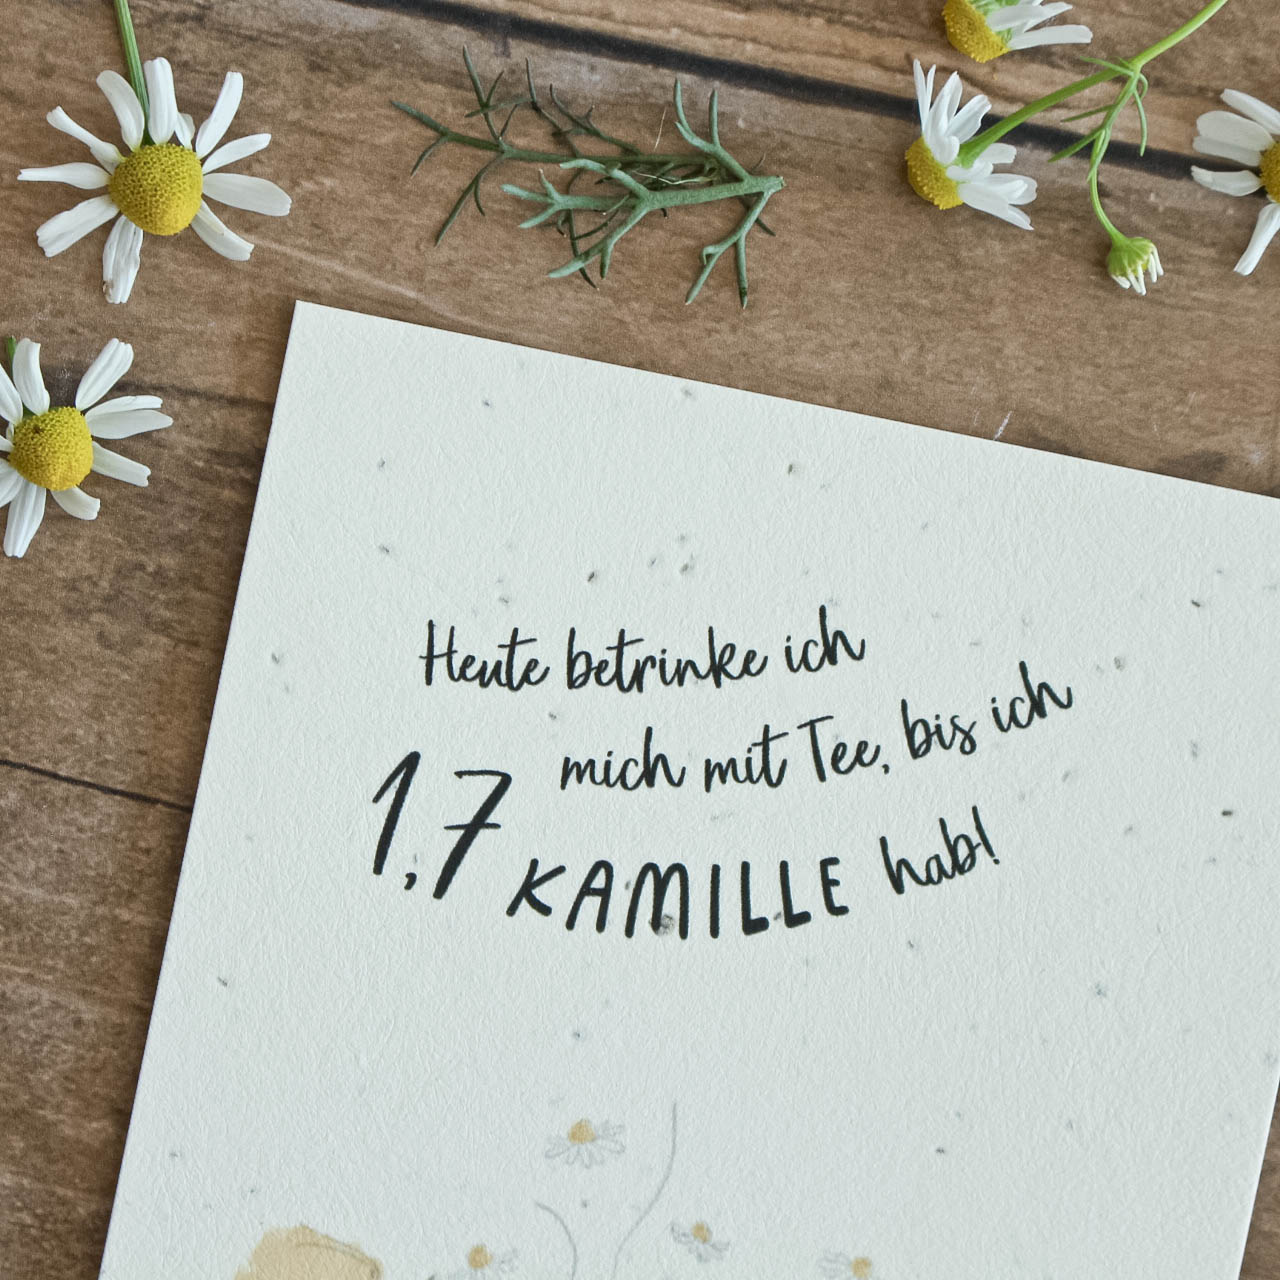 Heute betrinke ich
mich mit Tee, bis ich
1,7 KAMILLE hab!